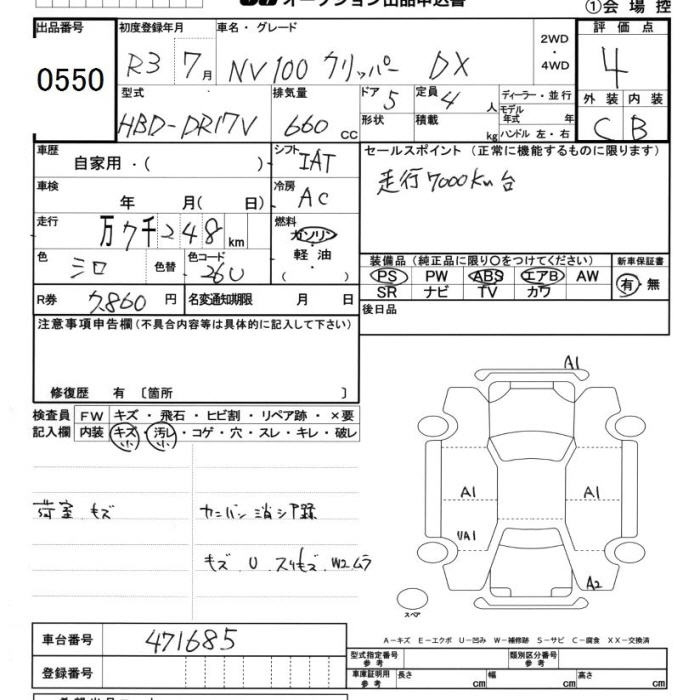 オークション出品申込書
①会 場 控
出品番号
0550
初度登録年月
R3 7月
車名・グレード
NV100 クリッパー DX
2WD
・
4WD
評 価 点
4
外 装 内 装
C B
型式
HBD-DR17V
排気量
660 cc
ドア 5
形状
定員 4 人
積載 kg
ディーラー・並行
モデル
年式 年
ハンドル 左・右
車歴
自家用・( )
シフト IAT
車検
年 月( 日)
冷房 AC
走行
万7千248km
燃料
ガソリン
・
軽 油
( )
色
シロ
色替
色コード
26U
R券 7,860 円
名変通知期限 月 日
セールスポイント (正常に機能するものに限ります)
走行7000Km台
装備品(純正品に限り○をつけてください)
PS PW ABS エアB AW
SR ナビ TV カワ
新車保証書
有・無
後日品
注意事項申告欄(不具合内容等は具体的に記入して下さい)
修復歴 有 〔箇所 〕
検査員 FW キズ・飛石・ヒビ割・リペア跡・×要
記入欄 内装 キズ・汚レ・コゲ・穴・スレ・キレ・破レ
小 小
荷室 キズ
カンバン消シア跡
キズ.U.スリキズ.W2.ムラ
A1
A1 A1
UA1
A2
スペア
A－キズ E－エクボ U－凹み W－補修跡 S－サビ C－腐食 XX－交換済
車台番号 471685
登録番号
型式指定番号
参 考
類別区分番号
参 考
車庫証明用
参 考
長さ cm
幅 cm
高さ cm